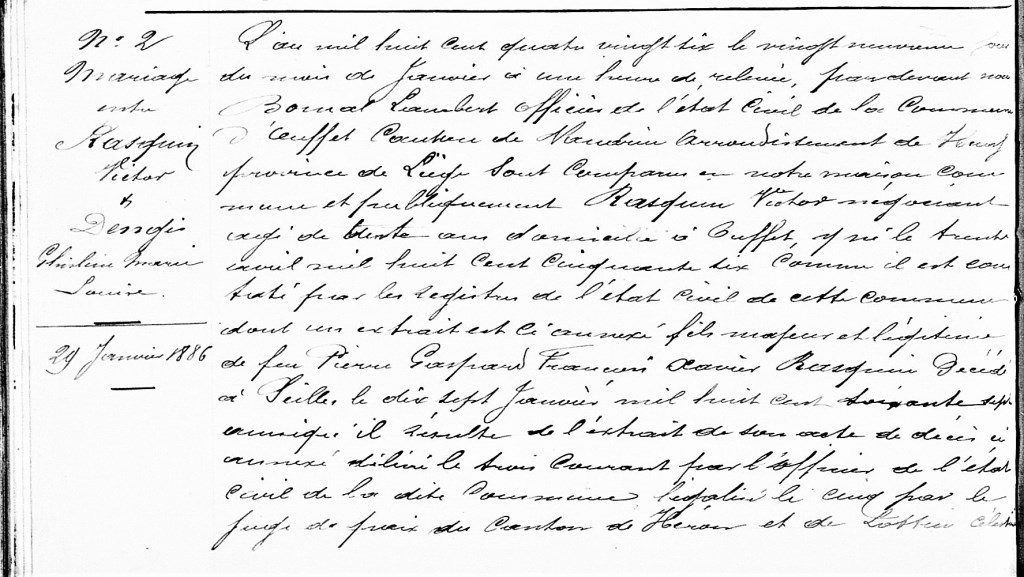 N° 2
Mariage
entre
Rasquin
Victor
&
Dessogis
Ghisline Marie
Louise.
29 Janvier 1886
L'an mil huit cent quatre vingt six le vingt neuvieme jour
du mois de Janvier à une heure de relevée, par devant nous
Bomal Lambert Officier de l'état Civil de la Commune
d'Ouffet Canton de Nandrin arrondissement de Huy
province de Liège sont comparus en notre maison com
mune et publiquement Rasquin Victor négociant
agé de trente ans domicilié à Ouffet, y né le trente
avril mil huit cent cinquante six comme il est cons
taté par les registres de l'état civil de cette commune
dont un extrait est ci annexé fils majeur et légitime
de feu Pierre Gaspard François Xavier Rasquin Décédé
à Seilles le dix sept Janvier mil huit cent soixante sept
ainsiqu'il résulte de l'extrait de son acte de décès ci
annexé délivré le trois Courant par l'Officier de l'état
civil de la dite Commune légalisé le cinq par le
juge de paix du Canton de Héron et de